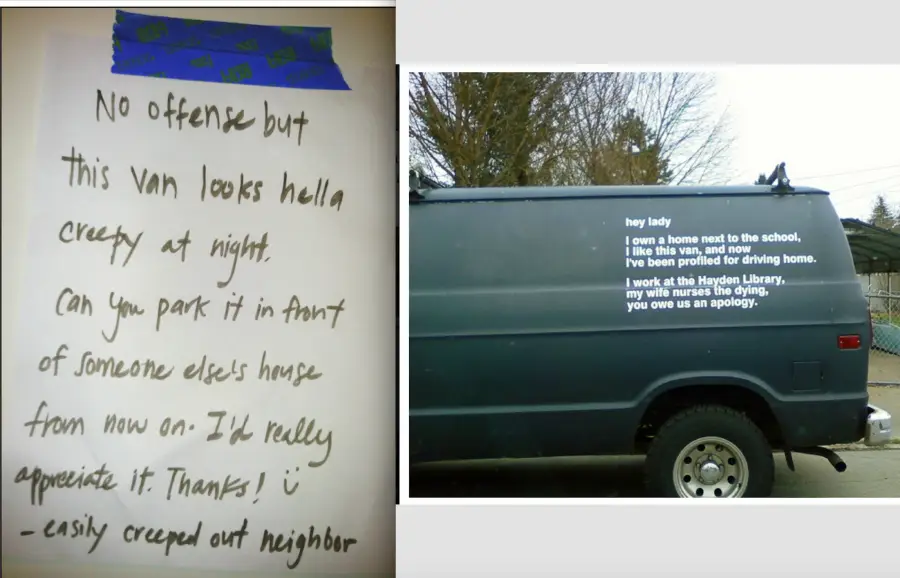 No offense but
this van looks hella
creepy at night.
Can you park it in front
of someone else's house
from now on. I'd really
appreciate it. Thanks! ü
- easily creeped out neighbor
hey lady
I own a home next to the school,
I like this van, and now
I've been profiled for driving home.
I work at the Hayden Library,
my wife nurses the dying,
you owe us an apology.